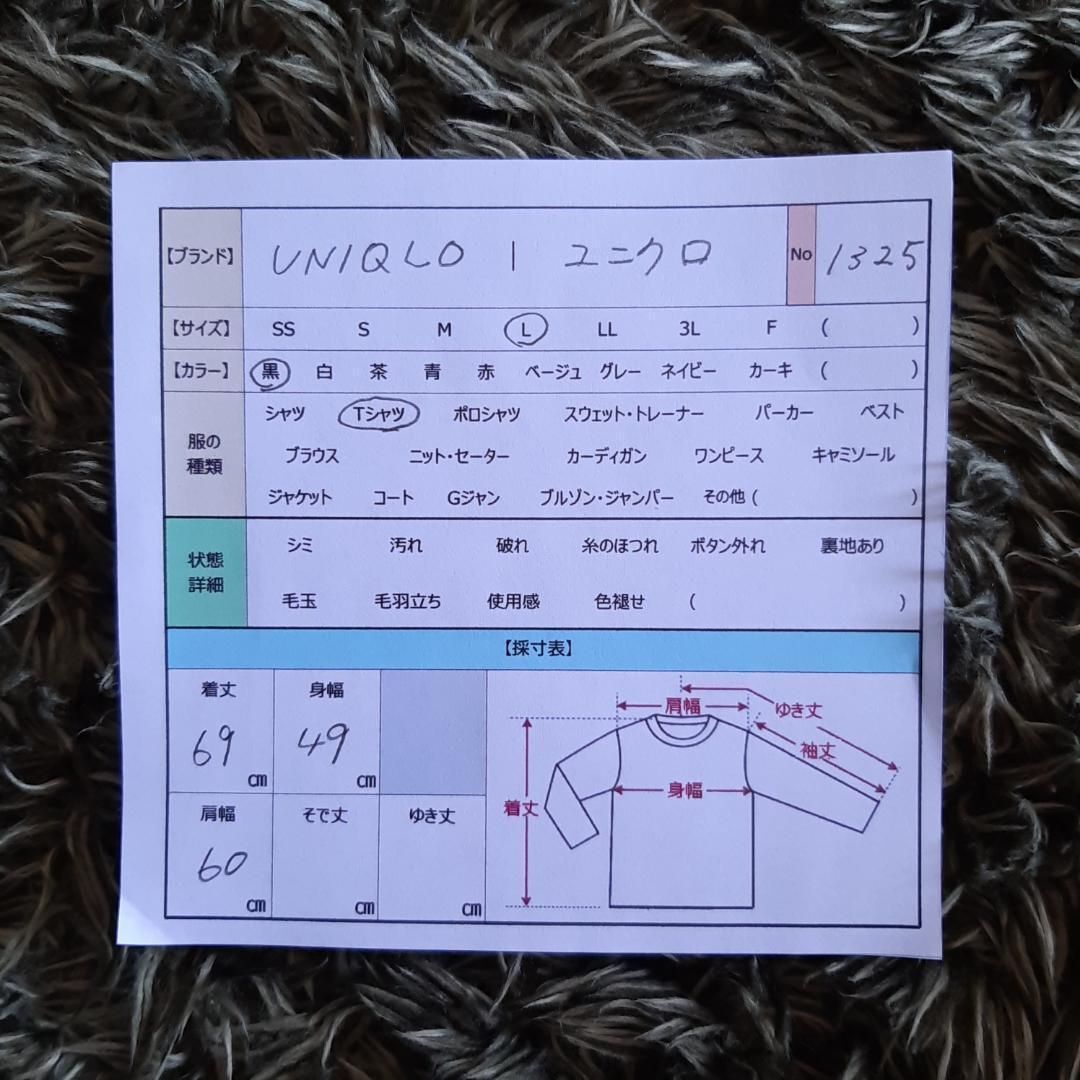 【ブランド】 UNIQLO | ユニクロ No 1325
【サイズ】 SS S M L LL 3L F ( )
【カラー】 黒 白 茶 青 赤 ベージュ グレー ネイビー カーキ ( )
服の種類
シャツ Tシャツ ポロシャツ スウェット・トレーナー パーカー ベスト
ブラウス ニット・セーター カーディガン ワンピース キャミソール
ジャケット コート Gジャン ブルゾン・ジャンパー その他 ( )
状態詳細
シミ 汚れ 破れ 糸のほつれ ボタン外れ 裏地あり
毛玉 毛羽立ち 使用感 色褪せ ( )
【採寸表】
着丈 身幅
69 cm 49 cm
肩幅 そで丈 ゆき丈
60 cm cm cm
肩幅 ゆき丈
袖丈
身幅
着丈